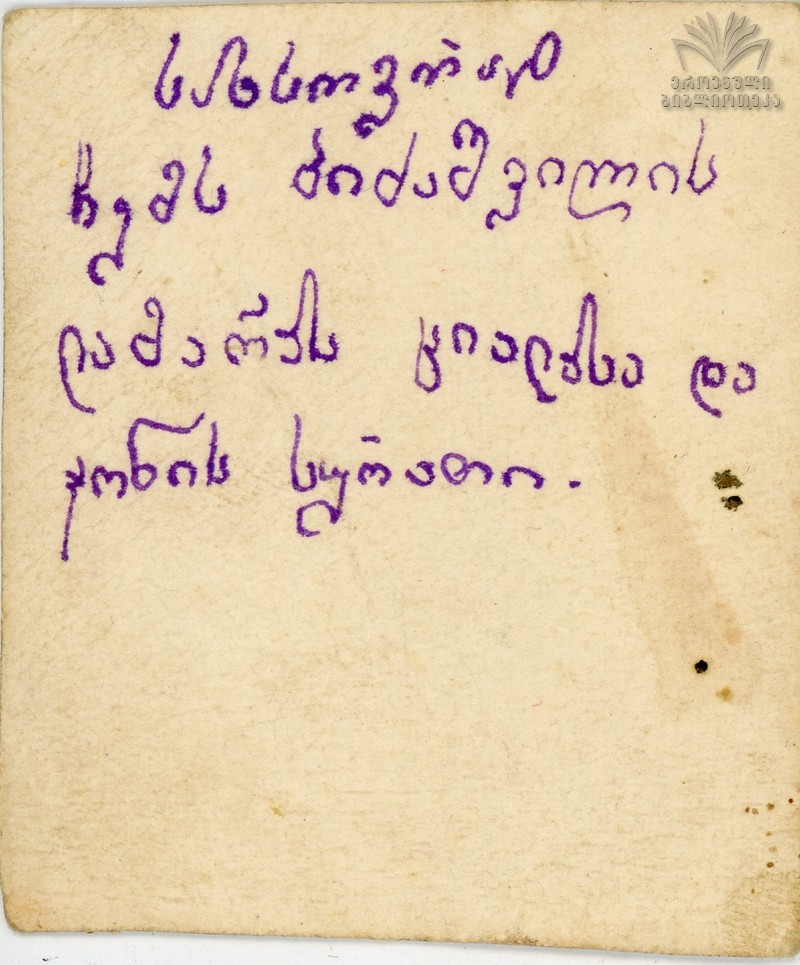 ეროვნული
ბიბლიოთეკა
სახსოვრად
ჩემს ბიძაშვილის
ლამარას ციალასა და
ჯონის სურათი.